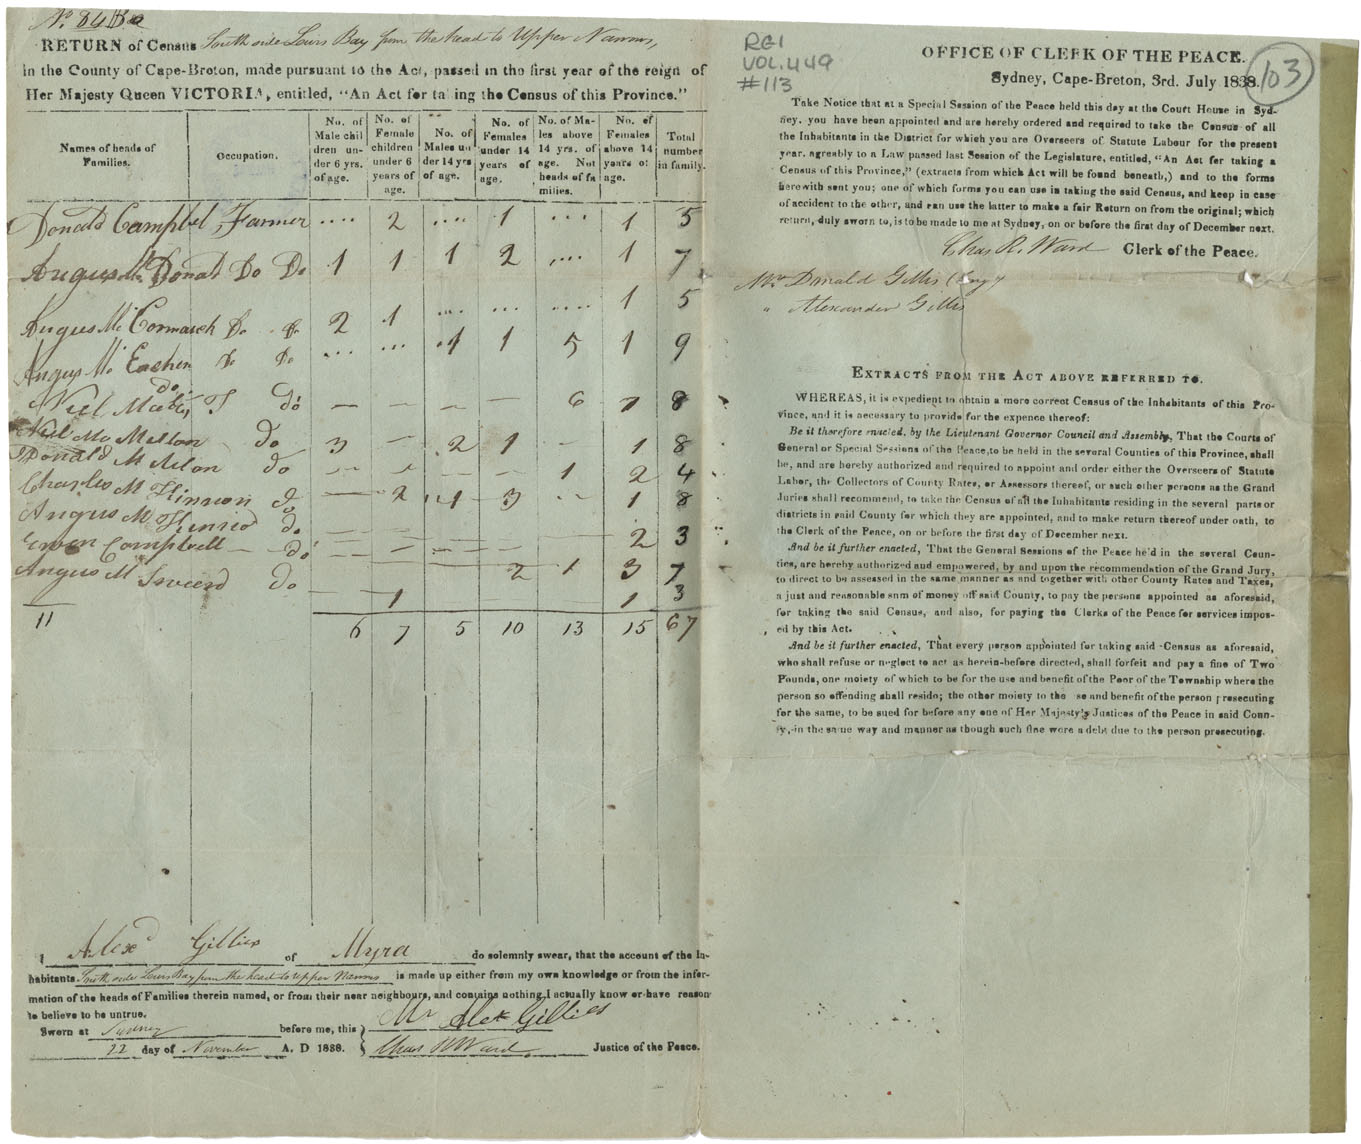 No. 84 B
RETURN of Census South side Lewis Bay from the head to Upper Narrows,
in the County of Cape-Breton, made pursuant to the Act, passed in the first year of the reign of
Her Majesty Queen VICTORIA, entitled, "An Act for taking the Census of this Province."
Names of heads of Families. Occupation. No. of Male children under 6 yrs. of age. No. of Female children under 6 years of age. No. of Males under 14 yrs of age. No. of Females under 14 years of age. No. of Males above 14 yrs. of age. Not heads of families. No. of Females above 14 years of age. Total number in family.
Donald Campbel, Farmer .... 2 .... 1 .... 1 5
Angus Mc Donald Do Do 1 1 1 2 .... 1 7
Angus Mc Cormack Do do 2 1 .... .... .... 1 5
Angus Mc Eachen Do Do ... ... 1 1 5 1 9
Neil do. do — — — — 6 1 8
Neil Mc do 3 — 2 1 — 1 8
Donald M do — — — — 1 2 4
Charles M Kinnon do — 2 1 3 — 1 8
Angus M do — — — — — 2 3
Ewen Campbell — do — — — 2 1 3 7
Angus M do — 1 — — — 1 3
11 6 7 5 10 13 15 67
I Alexr Gillies of Myra do solemnly swear, that the account of the In-
habitants South side Lewis Bay from the head to Upper Narrows is made up either from my own knowledge or from the infor-
mation of the heads of Families therein named, or from their near neighbours, and contains nothing I actually know or have reason
to believe to be untrue.
Mr Alex Gillies
Sworn at Sydney before me, this
22 day of November A. D 1838. Chas R Ward Justice of the Peace.
RG1
VOL.449
#113
103
OFFICE OF CLERK OF THE PEACE.
Sydney, Cape-Breton, 3rd. July 1838.
Take Notice that at a Special Session of the Peace held this day at the Court House in Syd-
ney. you have been appointed and are hereby ordered and required to take the Census of all
the Inhabitants in the District for which you are Overseers of Statute Labour for the present
year. agreably to a Law passed last Session of the Legislature, entitled, "An Act for taking a
Census of this Province," (extracts from which Act will be found beneath,) and to the forms
herewith sent you; one of which forms you can use in taking the said Census, and keep in case
of accident to the other, and can use the latter to make a fair Return on from the original; which
return, duly sworn to, is to be made to me at Sydney, on or before the first day of December next.
Chas R. Ward Clerk of the Peace.
Mr. Donald Gillis
" Alexander Gillis
EXTRACTS FROM THE ACT ABOVE REFERRED TO.
WHEREAS, it is expedient to obtain a more correct Census of the Inhabitants of this Pro-
vince, and it is necessary to provide for the expence thereof:
Be it therefore enacted, by the Lieutenant Governor Council and Assembly, That the Courts of
General or Special Sessions of the Peace, to be held in the several Counties of this Province, shall
be, and are hereby authorized and required to appoint and order either the Overseers of Statute
Labor, the Collectors of County Rates, or Assessors thereof, or such other persons as the Grand
Juries shall recommend, to take the Census of all the Inhabitants residing in the several parts or
districts in said County for which they are appointed, and to make return thereof under oath, to
the Clerk of the Peace, on or before the first day of December next.
And be it further enacted, That the General Sessions of the Peace he'd in the several Coun-
ties, are hereby authorized and empowered, by and upon the recommendation of the Grand Jury,
to direct to be assessed in the same manner as and together with other County Rates and Taxes,
a just and reasonable sum of money off said County, to pay the persons appointed as aforesaid,
for taking the said Census, and also, for paying the Clerks of the Peace for services impos-
ed by this Act.
And be it further enacted, That every person appointed for taking said Census as aforesaid,
who shall refuse or neglect to act as herein-before directed, shall forfeit and pay a fine of Two
Pounds, one moiety of which to be for the use and benefit of the Poor of the Township where the
person so offending shall reside; the other moiety to the se and benefit of the person prosecuting
for the same, to be sued for before any one of Her Majesty's Justices of the Peace in said Coun-
ty, in the same way and manner as though such fine were a debt due to the person prosecuting.